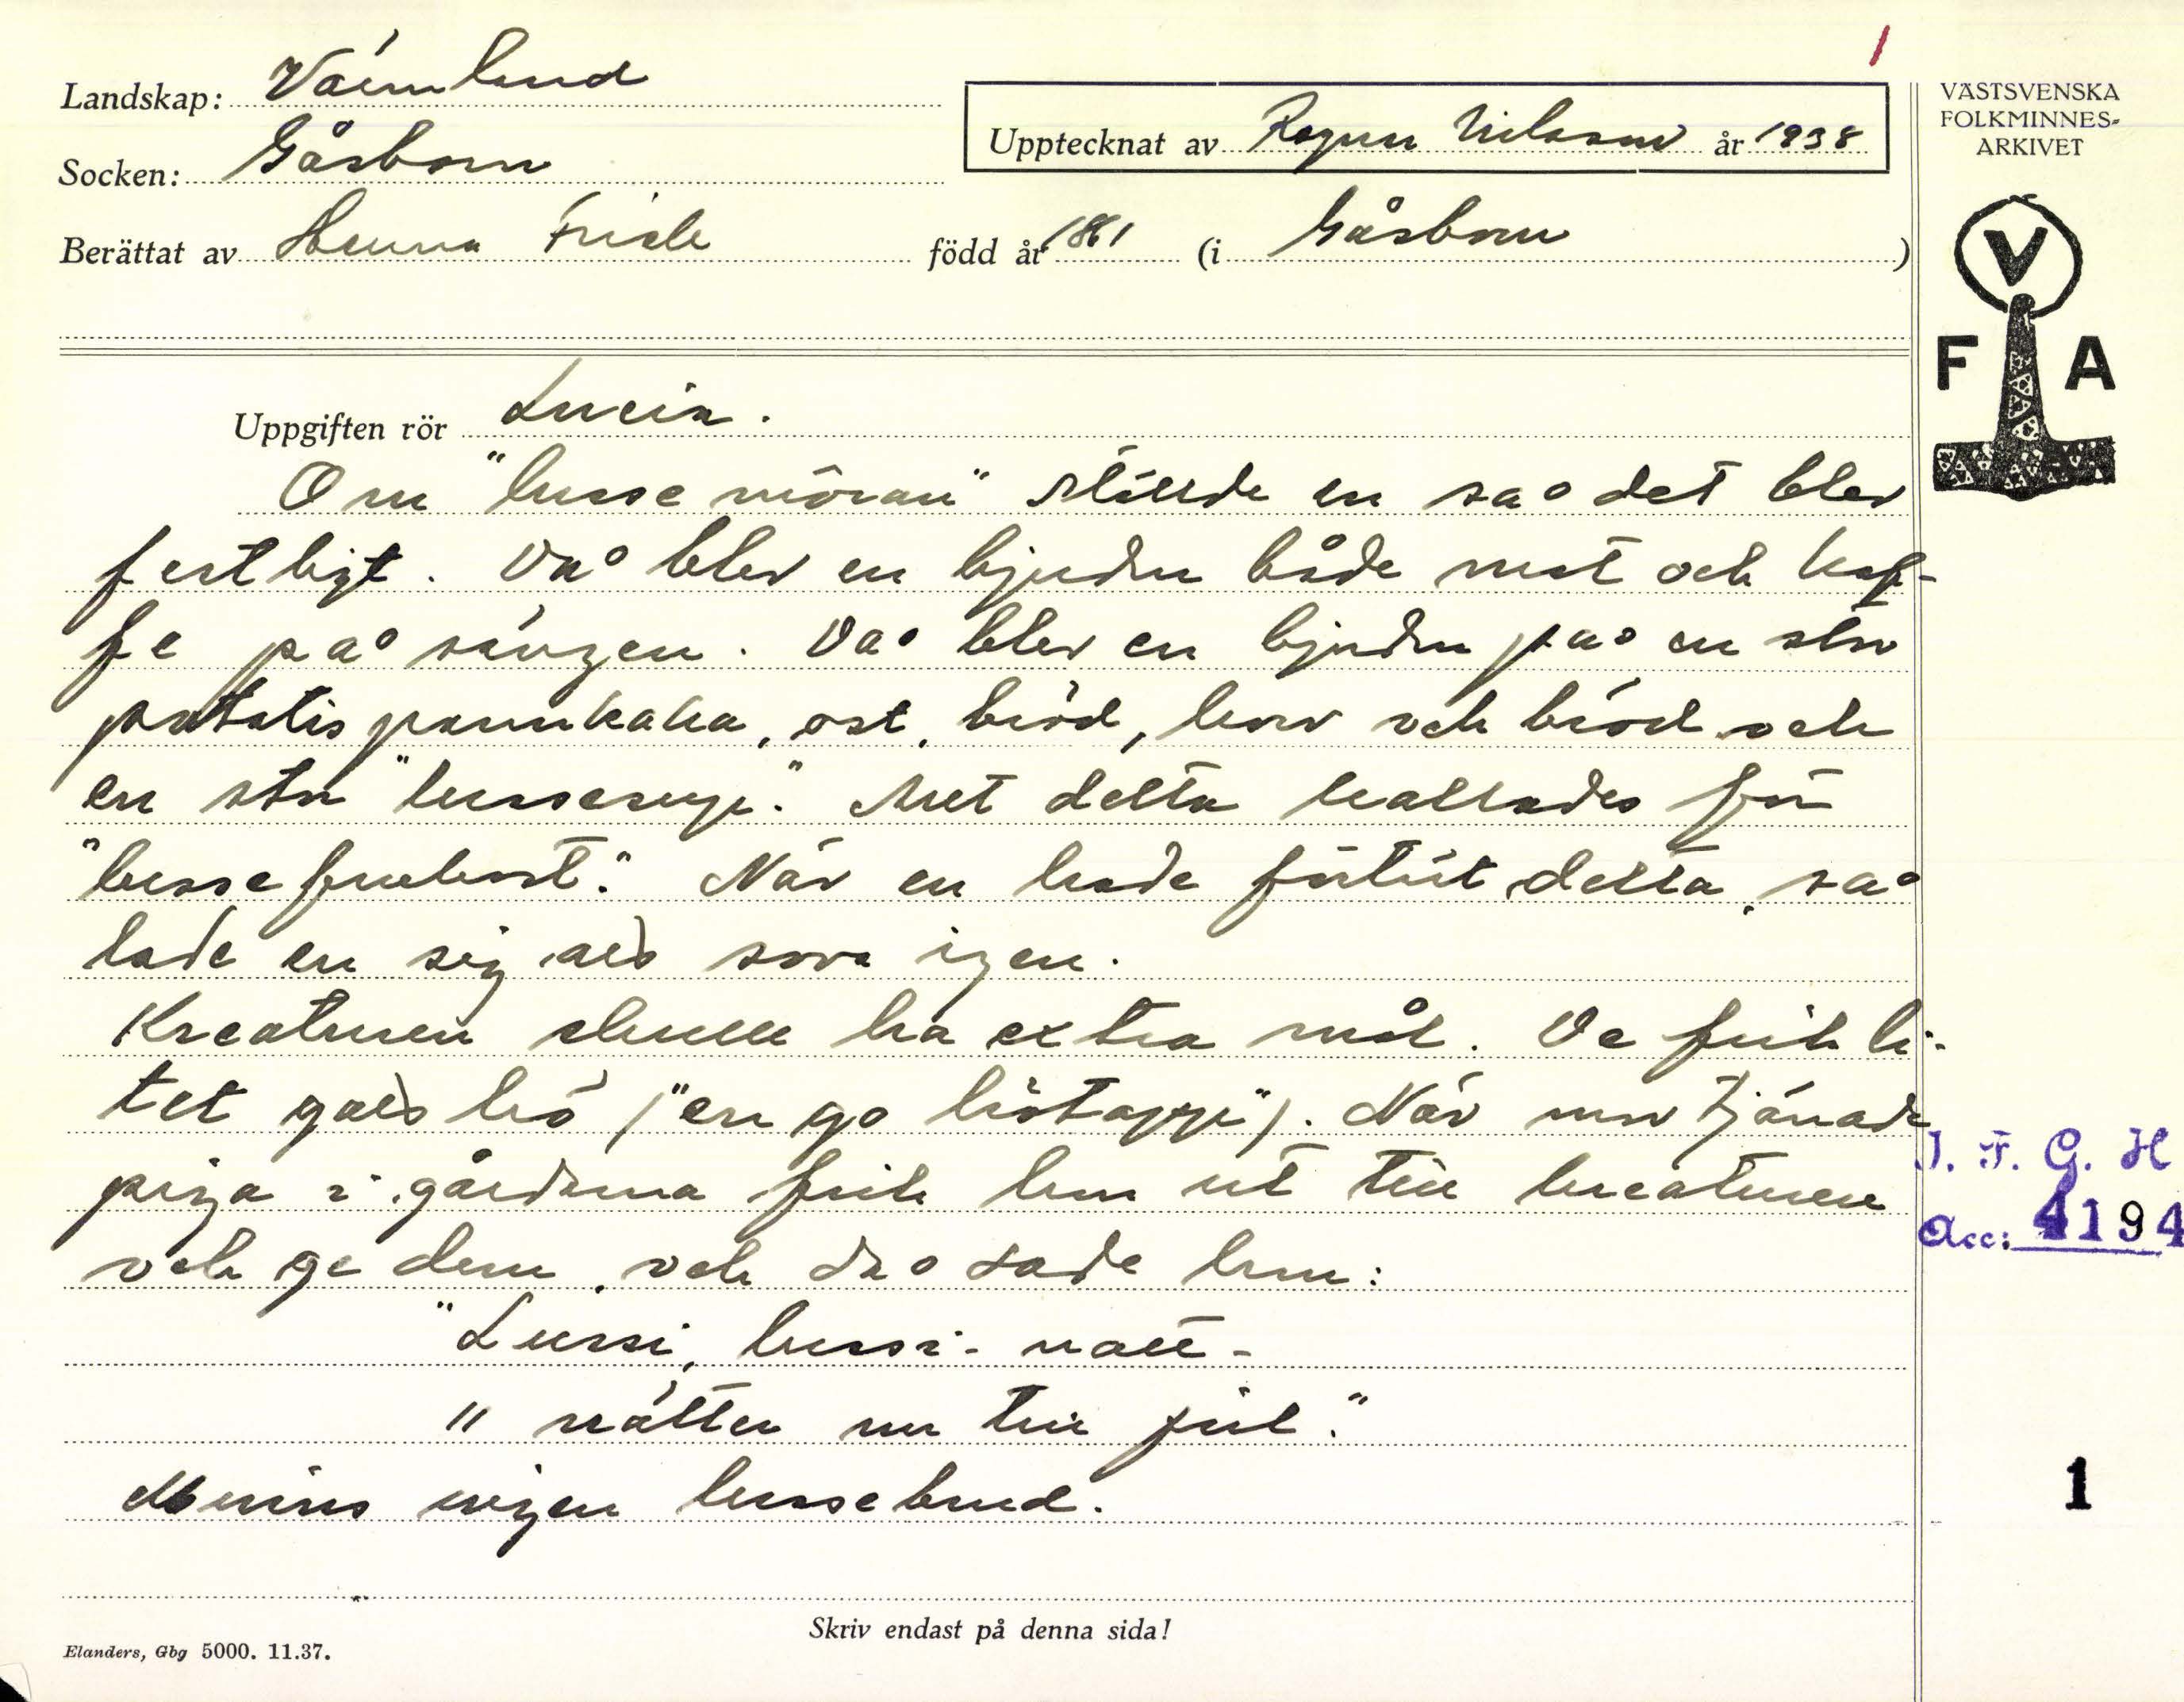 1
Landskap: Värmland
Socken: Gåsborn
Upptecknat av Ragnar Nilsson år 1938
Berättat av Hanna Frisk född år 1861 (i Gåsborn)
VÄSTSVENSKA
FOLKMINNES-
ARKIVET
V
F A
Uppgiften rör Lucia.
Om "lusse möran" ställde en så det blev
festligt. Då blev en bjuden både mat och kaf-
fe på sängen. Då blev en bjuden på en stor
potatispannkaka, ost, bröd, korv och bröd och
en stor "lussesup." Allt detta kallades för
"lusse frukost." När en hade förtärt detta, så
lade en sig att sova igen.
Kreaturen skulle ha extra mål. De fick li-
tet gott hö ("en go hötapp"). När mor tjänade
piga i gårdarna fick hon ut till kreaturen
och ge dem, och då sade hon:
"Lussi, lussi- natt-
" nätter nu till jul."
Minns ingen lussebrud.
I. F. G. H
Acc: 4194
1
Skriv endast på denna sida!
Elanders, Gbg 5000. 11.37.